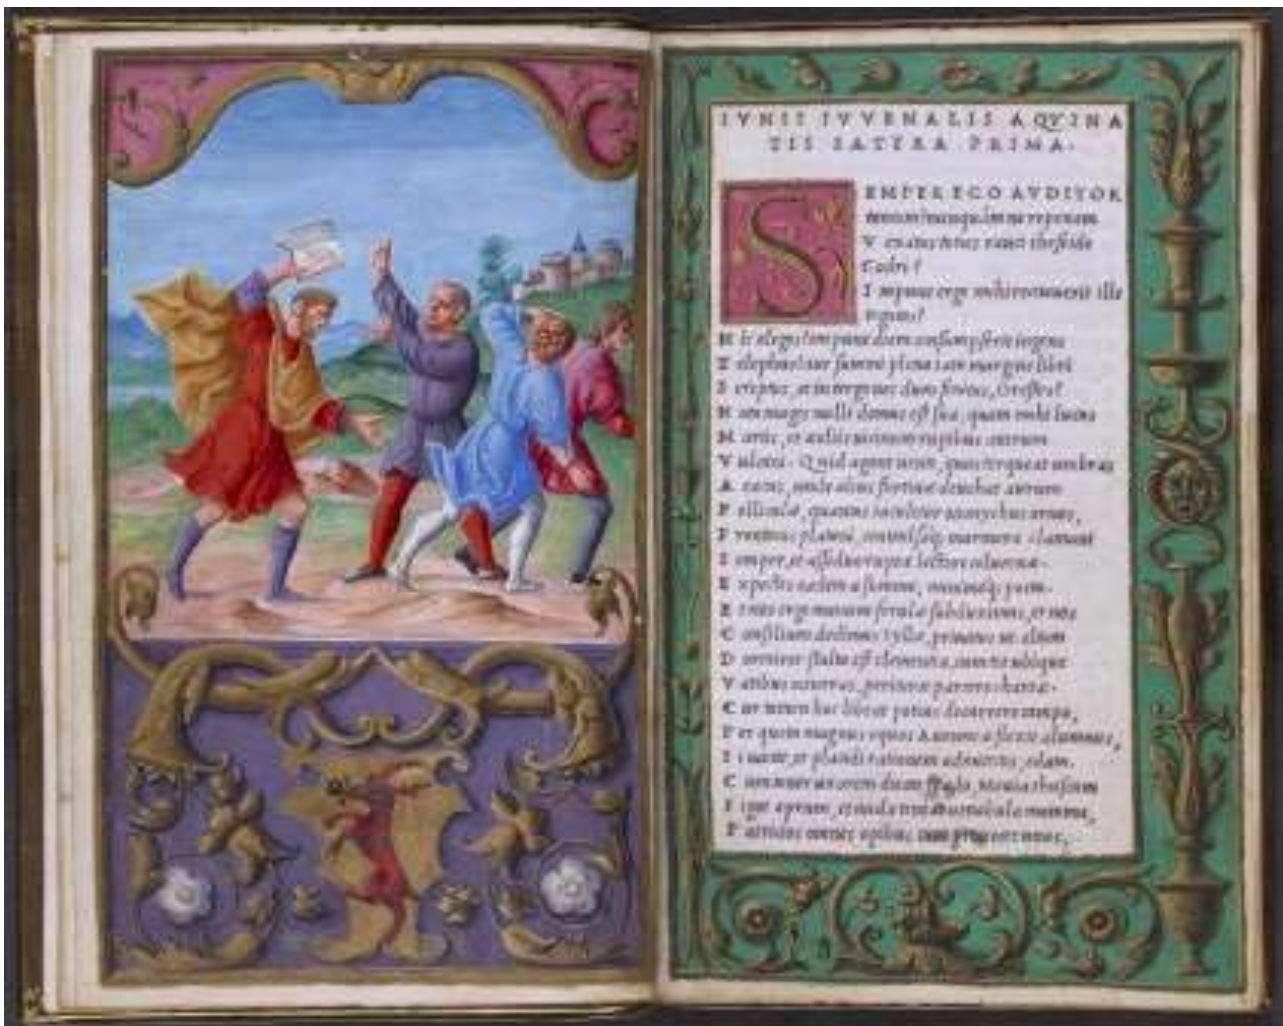 IVNII IVVENALIS AQVINA
TIS SATYRA PRIMA.
SEMPER EGO AVDITOR
tantum? nunquam ne reponam
V exatus toties rauci theseide
Codri?
I mpune ergo mihi recitauerit ille
togatas?
H ic elegos? impune diem consumpserit ingens
T elephus? aut summi plena iam margine libri
S criptus, et in tergo nec dum finitus, Orestes?
N ota magis nulli domus est sua, quam mihi lucus
M artis, et aeoliis uicinum rupibus antrum
V ulcani. Quid agant uenti, quas torqueat umbras
A eacus, unde alius furtiuae deuehat aurum
P elliculae, quantas iaculetur monychus ornos,
F rontonis platani, conuulsaq; marmora clamant
S emper, et assiduo ruptae lectore columnae.
E xpectes eadem a summo, minimoq; poeta.
E t nos ergo manum ferulae subduximus, et nos
C onsilium dedimus Syllae, priuatus ut altum
D ormiret. stulta est clementia, cum tot ubique
V atibus occurras, periturae parcere chartae.
C ur tamen hoc libeat potius decurrere campo,
P er quem magnus equos Auruncae flexit alumnus,
S i uacat, et placidi rationem admittitis, edam.
C um tener uxorem ducat spado, Meuia thuscum
F igat aprum, et nuda teneat uenabula mamma,
P atricios omnes opibus cum prouocet unus,